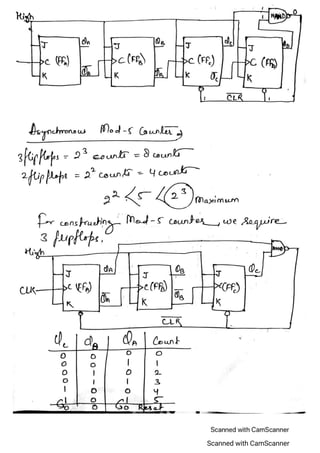 High
QA
QB
QC
QD
NAND
0
J
J
J
J
C (FFA)
C (FFB)
C (FFC)
C (FFD)
K
K
K
K
CLR
Asynchronous Mod-5 Counter
3 flipflops = 2^3 counts = 8 counts
2 flipflops = 2^2 counts = 4 counts
2^2 < 5 < 2^3 maximum
For constructing Mod-5 counter, we require
3 flipflops.
High
QA
QB
QC
J
J
J
CLK
C (FFA)
C (FFB)
C (FFC)
K
K
K
CLR
QC QB QA Count
0 0 0 0
0 0 1 1
0 1 0 2
0 1 1 3
1 0 0 4
1 0 1 5
0 0 0 Reset
Scanned with CamScanner
Scanned with CamScanner